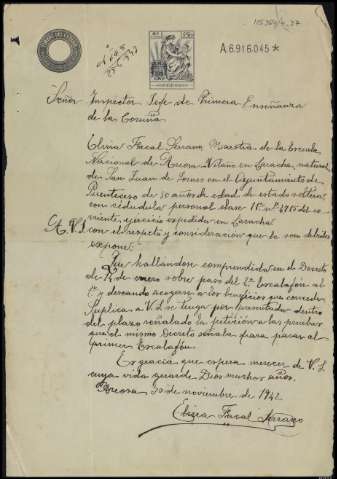 A.6.916.045*
Señor Inspector Jefe de Primera Enseñanza
de la Coruña
Elvira Fiscal Maestra de la Escuela
Nacional de en Laracha, natural
de San Juan de en el Ayuntamiento de
Puenteceso de 30 años de edad de estado soltera
con cédula personal clase del co-
rriente, ejercicio expedida en Laracha
A V.S. con el respeto y consideración que le son debidos
expone:
Que hallandose comprendida en el Decreto
de de enero sobre paso del 2º Escalafón al
1º y deseando acogerse a los beneficios que concede
Suplica a V.S. se tenga por presentada dentro
del plazo señalado la petición a las pruebas
que el mismo Decreto señala para pasar al
primer Escalafón.
Es gracia que espera merecer de V.S.
cuya vida guarde Dios muchos años.
30 de noviembre de 1942
Elvira Fiscal